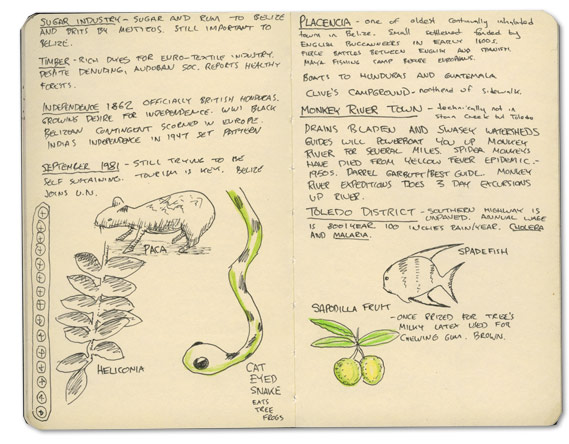 SUGAR INDUSTRY - SUGAR AND RUM TO BELIZE
AND BRITS BY MESTIZOS. STILL IMPORTANT TO
BELIZE.
TIMBER - RICH DYES FOR EURO-TEXTILE INDUSTRY.
DESPITE DENUDING, AUDOBAN SOC. REPORTS HEALTHY
FORESTS.
INDEPENDENCE 1862 OFFICIALLY BRITISH HONDURAS.
GROWING DESIRE FOR INDEPENDENCE. WWI BLACK
BELIZEAN CONTINGENT SCORNED IN EUROPE.
INDIA'S INDEPENDENCE IN 1947 SET PATTERN
SEPTEMBER 1981 - STILL TRYING TO BE
SELF SUSTAINING. TOURISM IS KEY. BELIZE
JOINS U.N.
PACA
HELICONIA
CAT
EYED
SNAKE
EATS
TREE
FROGS
PLACENCIA - one of oldest continually inhabited
towns in Belize. Small settlement founded by
ENGLISH BUCCANEERS IN EARLY 1600s.
FIERCE BATTLES BETWEEN ENGLISH AND SPANISH.
MAYA FISHING CAMP BEFORE EUROPEANS.
BOATS TO HONDURAS AND GUATEMALA
CLIVE'S CAMPGROUND - northend of sidewalk.
MONKEY RIVER TOWN - technically not in
Stann Creek but Toledo
DRAINS BLADEN AND SWASEY WATERSHEDS
GUIDES WILL POWERBOAT YOU UP MONKEY
RIVER FOR SEVERAL MILES. SPIDER MONKEYS
HAVE DIED FROM YELLOW FEVER EPIDEMIC -
1950s. DARREL GARBUTT/BEST GUIDE. MONKEY
RIVER EXPEDITIONS DOES 3 DAY EXCURSIONS
UP RIVER.
TOLEDO DISTRICT - SOUTHERN HIGHWAY IS
UNPAVED. ANNUAL WAGE
IS 800/YEAR 100 INCHES RAIN/YEAR. CHOLERA
AND MALARIA.
SPADEFISH
SAPODILLA FRUIT
- ONCE PRIZED FOR TREE'S
MILKY LATEX USED FOR
CHEWING GUM. BROWN.